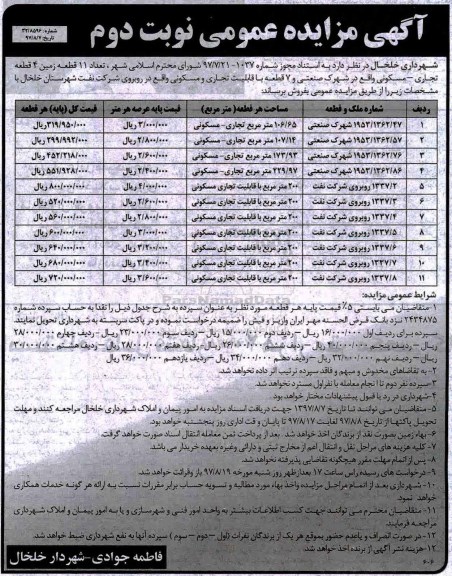 آگهی مزایده عمومی نوبت دوم
شماره: ۳۲/۸۵۹۶
تاریخ: ۹۷/۸/۷
شهرداری خلخال در نظر دارد به استناد مجوز شماره ۱۰۳۷-۹۷/۷/۲۱ شورای محترم اسلامی شهر، تعداد ۱۱ قطعه زمین ۴ قطعه
تجاری – مسکونی واقع در شهرک صنعتی و ۷ قطعه با قابلیت تجاری و مسکونی واقع در روبروی شرکت نفت شهرستان خلخال با
مشخصات زیر را از طریق مزایده عمومی بفروش برساند:
ردیف شماره ملک و قطعه مساحت هر قطعه (متر مربع) قیمت پایه عرصه هر متر قیمت کل (پایه) هر قطعه
۱ ۱۹۵۳/۱۳۶۲/۴۷ شهرک صنعتی ۱۰۶/۶۵ متر مربع تجاری- مسکونی ۳/۰۰۰/۰۰۰ ریال ۳۱۹/۹۵۰/۰۰۰ ریال
۲ ۱۹۵۳/۱۳۶۲/۵۷ شهرک صنعتی ۱۰۷/۱۴ متر مربع تجاری- مسکونی ۲/۸۰۰/۰۰۰ ریال ۲۹۹/۹۹۲/۰۰۰ ریال
۳ ۱۹۵۳/۱۳۶۲/۷۶ شهرک صنعتی ۱۷۳/۹۳ متر مربع تجاری- مسکونی ۲/۶۰۰/۰۰۰ ریال ۴۵۲/۲۱۸/۰۰۰ ریال
۴ ۱۹۵۳/۱۳۶۲/۸۶ شهرک صنعتی ۲۲۹/۹۷ متر مربع تجاری- مسکونی ۲/۴۰۰/۰۰۰ ریال ۵۵۱/۹۲۸/۰۰۰ ریال
۵ ۱۳۳۷/۲ روبروی شرکت نفت ۲۰۰ متر مربع با قابلیت تجاری مسکونی ۴/۰۰۰/۰۰۰ ریال ۸۰۰/۰۰۰/۰۰۰ ریال
۶ ۱۳۳۷/۳ روبروی شرکت نفت ۲۰۰ متر مربع با قابلیت تجاری مسکونی ۲/۶۰۰/۰۰۰ ریال ۵۲۰/۰۰۰/۰۰۰ ریال
۷ ۱۳۳۷/۴ روبروی شرکت نفت ۲۰۰ متر مربع با قابلیت تجاری مسکونی ۲/۸۰۰/۰۰۰ ریال ۵۶۰/۰۰۰/۰۰۰ ریال
۸ ۱۳۳۷/۵ روبروی شرکت نفت ۲۰۰ متر مربع با قابلیت تجاری مسکونی ۳/۰۰۰/۰۰۰ ریال ۶۰۰/۰۰۰/۰۰۰ ریال
۹ ۱۳۳۷/۶ روبروی شرکت نفت ۲۰۰ متر مربع با قابلیت تجاری مسکونی ۳/۲۰۰/۰۰۰ ریال ۶۴۰/۰۰۰/۰۰۰ ریال
۱۰ ۱۳۳۷/۷ روبروی شرکت نفت ۲۰۰ متر مربع با قابلیت تجاری مسکونی ۳/۴۰۰/۰۰۰ ریال ۶۸۰/۰۰۰/۰۰۰ ریال
۱۱ ۱۳۳۷/۸ روبروی شرکت نفت ۲۰۰ متر مربع با قابلیت تجاری مسکونی ۳/۶۰۰/۰۰۰ ریال ۷۲۰/۰۰۰/۰۰۰ ریال
شرایط عمومی مزایده:
۱- متقاضیان می بایستی ۵٪ قیمت پایه هر قطعه مورد نظر به عنوان سپرده به شرح جدول ذیل را نقدا به حساب سپرده شماره
۲۴۳۴۸۷۵ نزد بانک قرض الحسنه مهر ایران واریز و فیش را ضمیمه درخواست نموده و در پاکت سربسته به شهرداری تحویل نمایند
سپرده برای ردیف اول ۱۶/۰۰۰/۰۰۰ ریال – ردیف دوم ۱۵/۰۰۰/۰۰۰ ریال – ردیف سوم ۲۳/۰۰۰/۰۰۰ ریال – ردیف چهارم ۲۸/۰۰۰/۰۰۰
ریال – ردیف پنجم ۴۰/۰۰۰/۰۰۰ ریال – ردیف ششم ۲۶/۰۰۰/۰۰۰ ریال – ردیف هفتم ۲۸/۰۰۰/۰۰۰ ریال – ردیف هشتم ۳۰/۰۰۰/۰۰۰
ریال – ردیف نهم ۳۲/۰۰۰/۰۰۰ ریال – ردیف دهم ۳۴/۰۰۰/۰۰۰ ریال – ردیف یازدهم ۳۶/۰۰۰/۰۰۰ ریال
۲- به تقاضاهای مخدوش و مبهم و فاقد سپرده ترتیب اثر داده نخواهد شد.
۳- سپرده نفر دوم تا انجام معامله با نفر اول مسترد نخواهد شد.
۴- شهرداری در رد یا قبول پیشنهادات مختار خواهد بود.
۵- متقاضیان می توانند تا تاریخ ۱۳۹۷/۸/۷ جهت دریافت اسناد مزایده به امور پیمان و املاک شهرداری خلخال مراجعه کنند و مهلت
تحویل پاکتها از تاریخ ۹۷/۸/۸ لغایت ۹۷/۸/۱۷ تا پایان وقت اداری روز پنجشنبه خواهد بود.
۶- بهاء زمین بصورت نقد از برندگان اخذ خواهد شد. بعد از پرداخت ثمن معامله انتقال اسناد صورت خواهد گرفت.
۷- کلیه هزینه های مراحل نقل و انتقال اعم از مخارج ثبتی و دارائی وغیره بعهده خریدار می باشد.
۸- پس از اتمام مهلت مقرر هیچگونه تقاضایی پذیرفته نخواهد شد.
۹- درخواست های رسیده راس ساعت ۱۷ بعدازظهر روز شنبه مورخه ۹۷/۸/۱۹ باز و قرائت خواهد شد.
۱۰- شهرداری بعد از اتمام مراحل مزایده واخذ بهاء مورد مطالبه و تسویه حساب برابر مقررات نسبت به ارائه هر گونه خدمات همکاری
خواهد نمود.
۱۱- متقاضیان محترم می توانند جهت کسب اطلاعات بیشتر به واحد امور فنی و شهرسازی و یا به امور پیمان و املاک شهرداری
مراجعه فرمایند.
۱۲- در صورت انصراف و یا عدم حضور بموقع هر یک از برندگان نفرات (اول – دوم – سوم) سپرده آنها به نفع شهرداری ضبط خواهد شد.
۱۳- هزینه نشر آگهی از برنده اخذ خواهد شد.
فاطمه جوادی-شهردار خلخال
۶۰۶
ParsNamadData